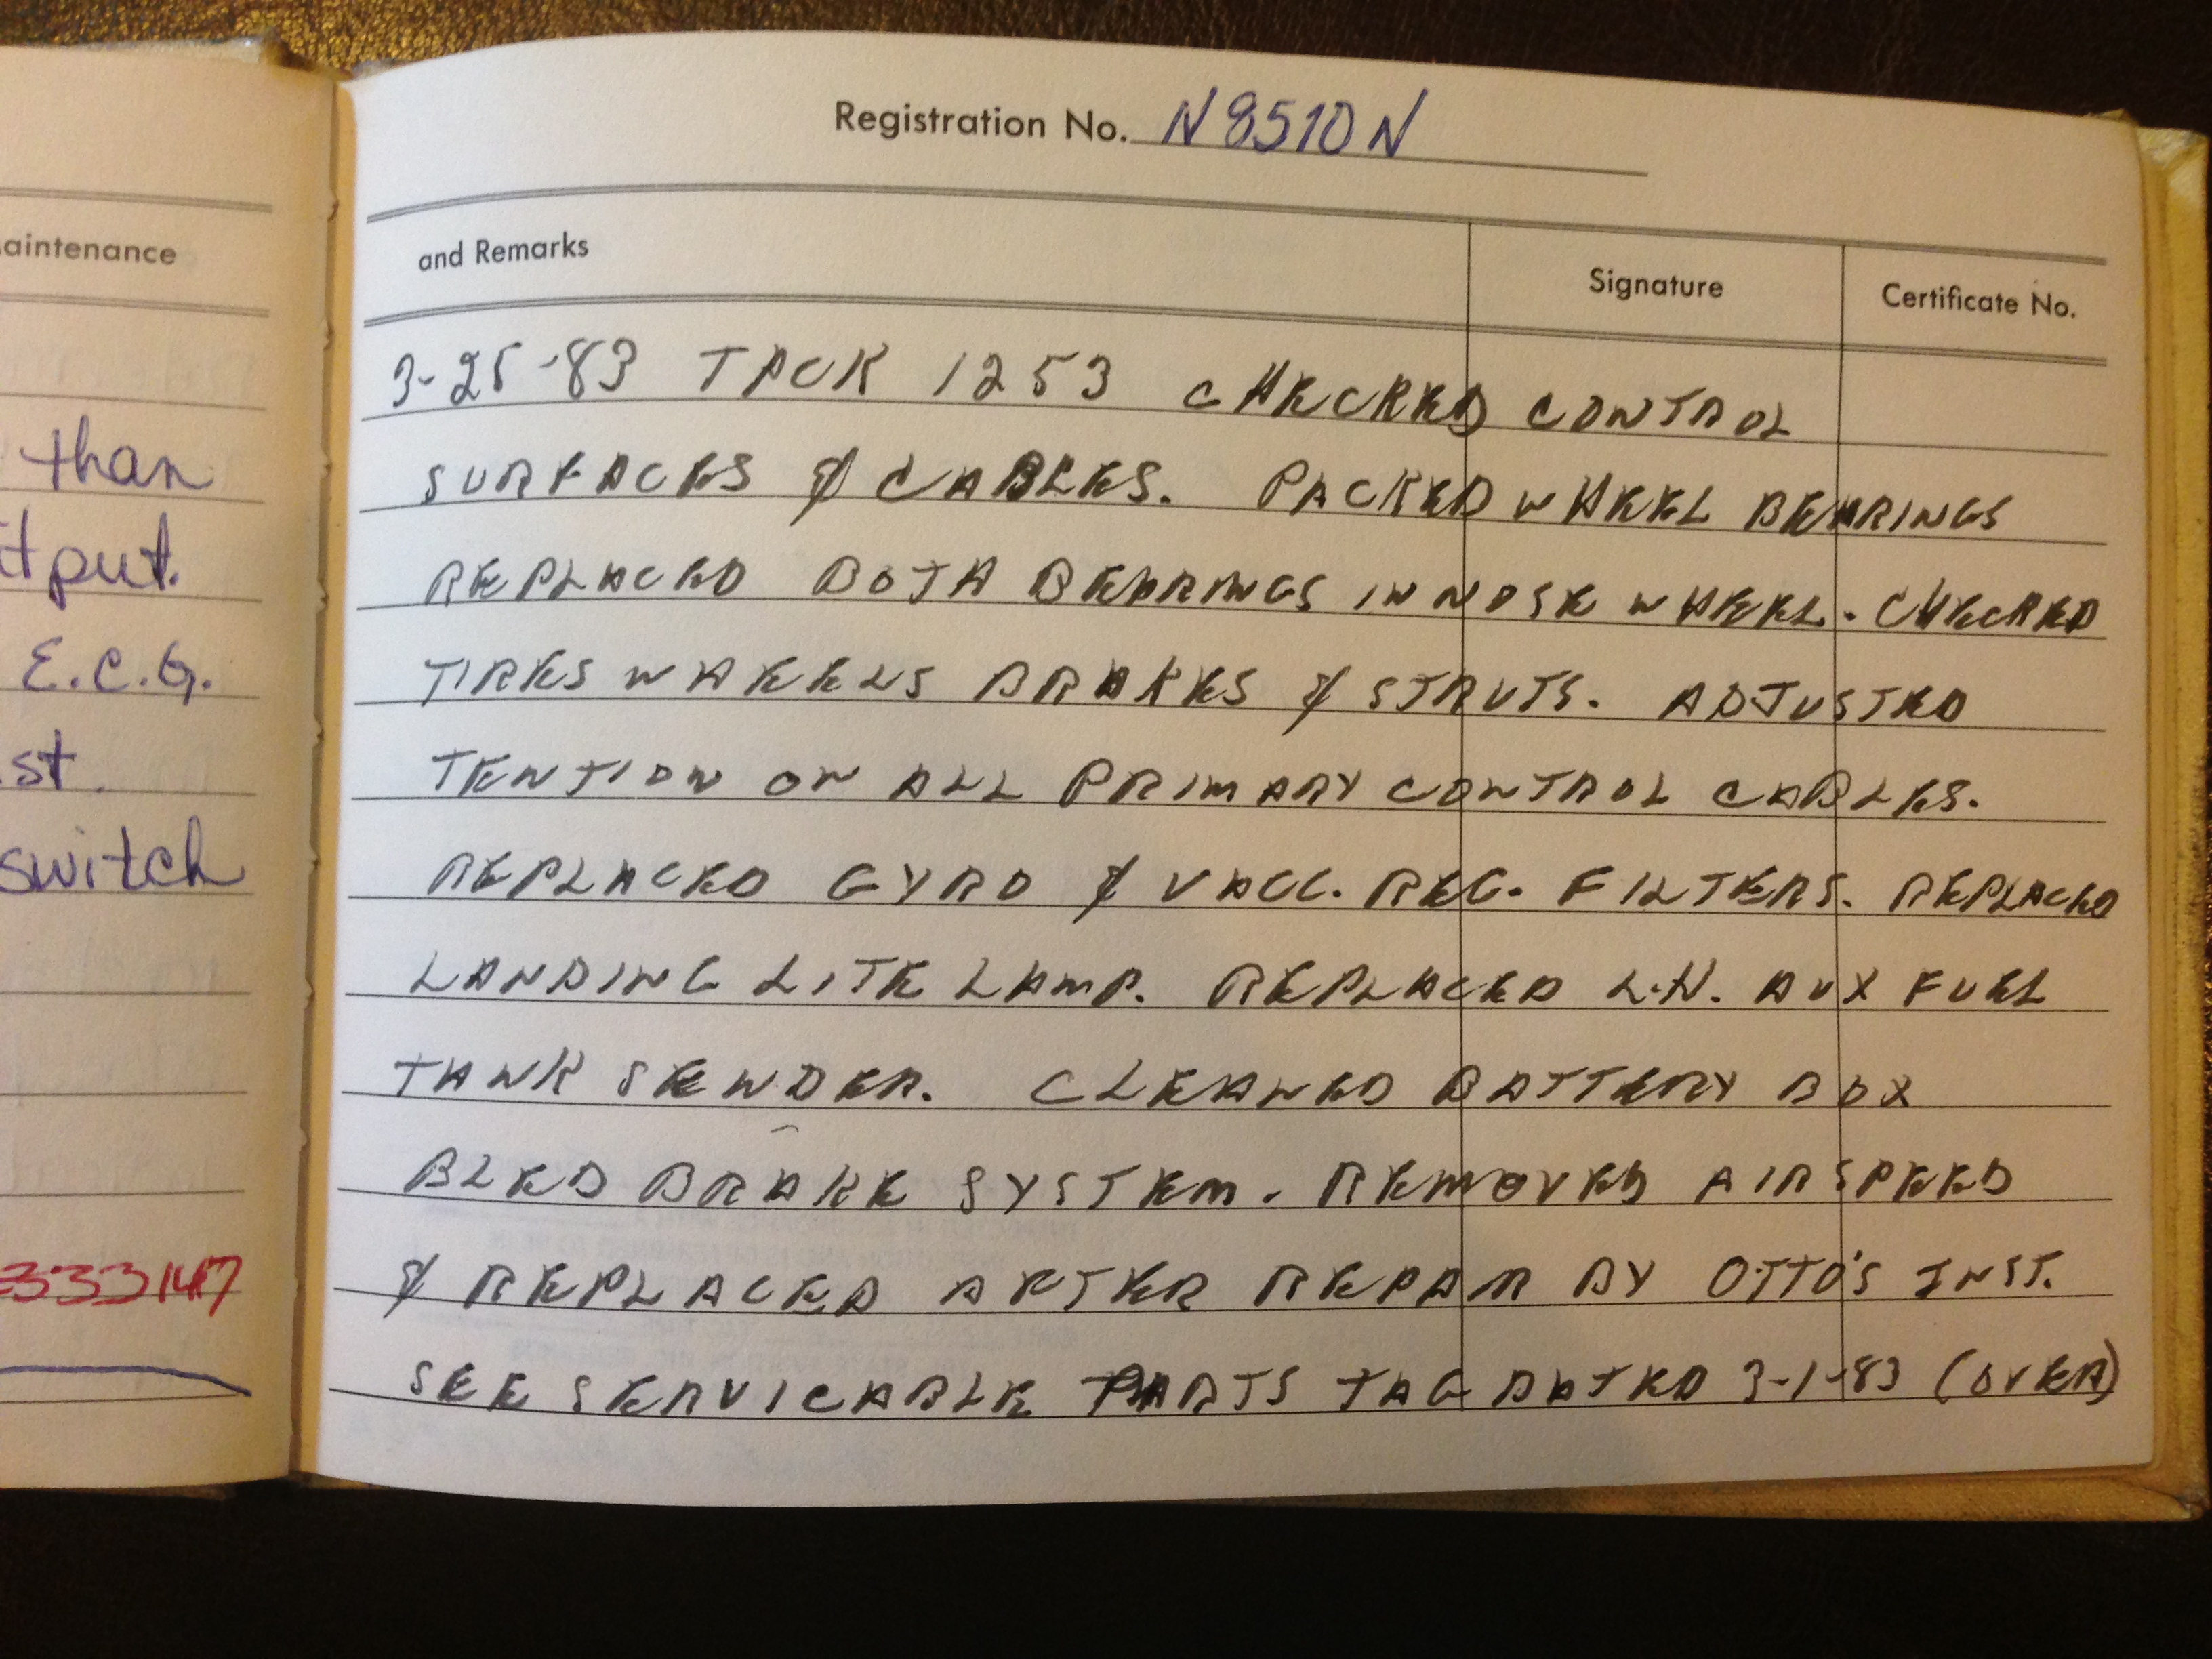 aintenance
than
tput.
E.C.G.
st.
switch
333147
Registration No. N8510N
and Remarks Signature Certificate No.
3-25-83 TACK 1253 CHECKED CONTROL
SURFACES & CABLES. PACKED WHEEL BEARINGS
REPLACED BOTH BEARINGS IN NOSE WHEEL. CHECKED
TIRES WHEELS BRAKES & STRUTS. ADJUSTED
TENTION ON ALL PRIMARY CONTROL CABLES.
REPLACED GYRO & VACC. REG. FILTERS. REPLACED
LANDING LITE LAMP. REPLACED L.H. AUX FUEL
TANK SENDER. CLEANED BATTERY BOX
BLED BRAKE SYSTEM. REMOVED AIRSPEED
& REPLACED AFTER REPAIR BY OTTO'S INST.
SEE SERVICABLE PARTS TAG DATED 3-1-83 (OVER)